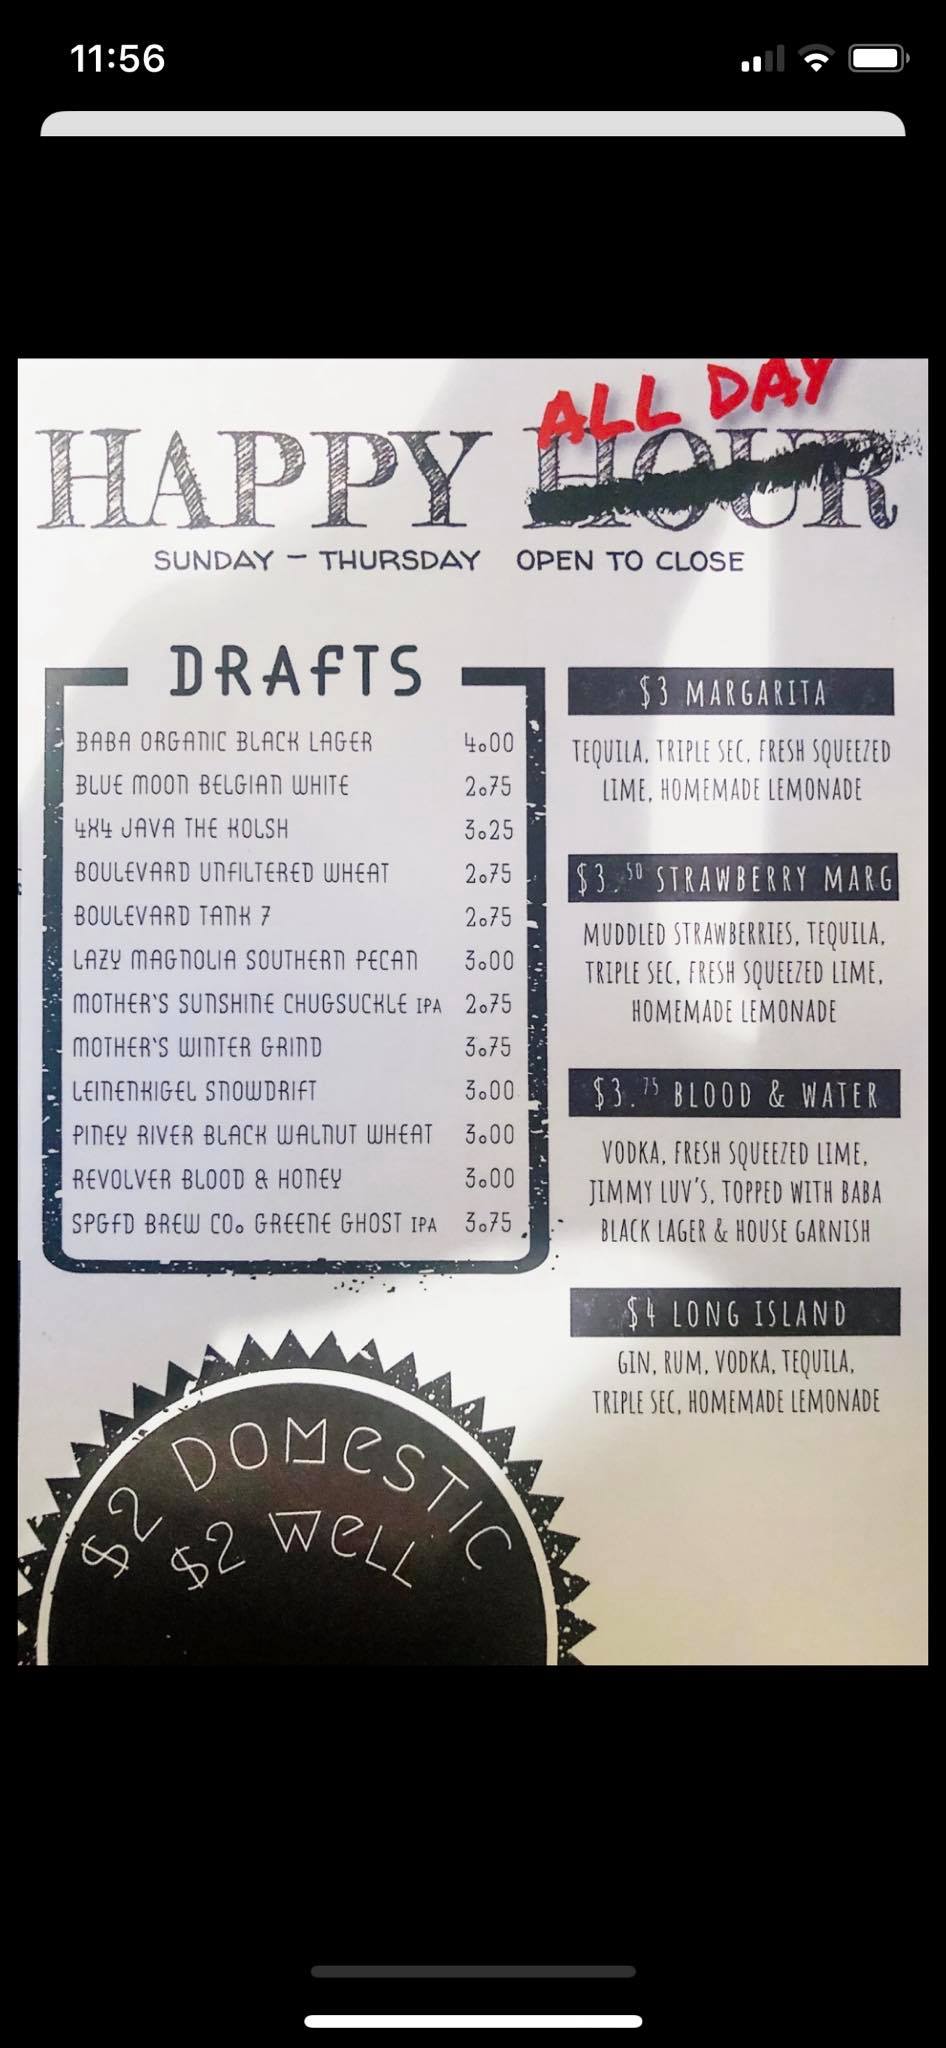 11:56
ALL DAY
HAPPY HOUR
SUNDAY - THURSDAY OPEN TO CLOSE
DRAFTS
BABA ORGANIC BLACK LAGER 4.00
BLUE MOON BELGIAN WHITE 2.75
4X4 JAVA THE KOLSH 3.25
BOULEVARD UNFILTERED WHEAT 2.75
BOULEVARD TANK 7 2.75
LAZY MAGNOLIA SOUTHERN PECAN 3.00
MOTHER'S SUNSHINE CHUGSUCKLE IPA 2.75
MOTHER'S WINTER GRIND 3.75
LEINENKIGEL SNOWDRIFT 3.00
PINEY RIVER BLACK WALNUT WHEAT 3.00
REVOLVER BLOOD & HONEY 3.00
SPGFD BREW CO. GREENE GHOST IPA 3.75
$3 MARGARITA
TEQUILA, TRIPLE SEC, FRESH SQUEEZED
LIME, HOMEMADE LEMONADE
$3.50 STRAWBERRY MARG
MUDDLED STRAWBERRIES, TEQUILA,
TRIPLE SEC, FRESH SQUEEZED LIME,
HOMEMADE LEMONADE
$3.75 BLOOD & WATER
VODKA, FRESH SQUEEZED LIME,
JIMMY LUV'S, TOPPED WITH BABA
BLACK LAGER & HOUSE GARNISH
$4 LONG ISLAND
GIN, RUM, VODKA, TEQUILA,
TRIPLE SEC, HOMEMADE LEMONADE
$2 DOMESTIC
$2 WELL